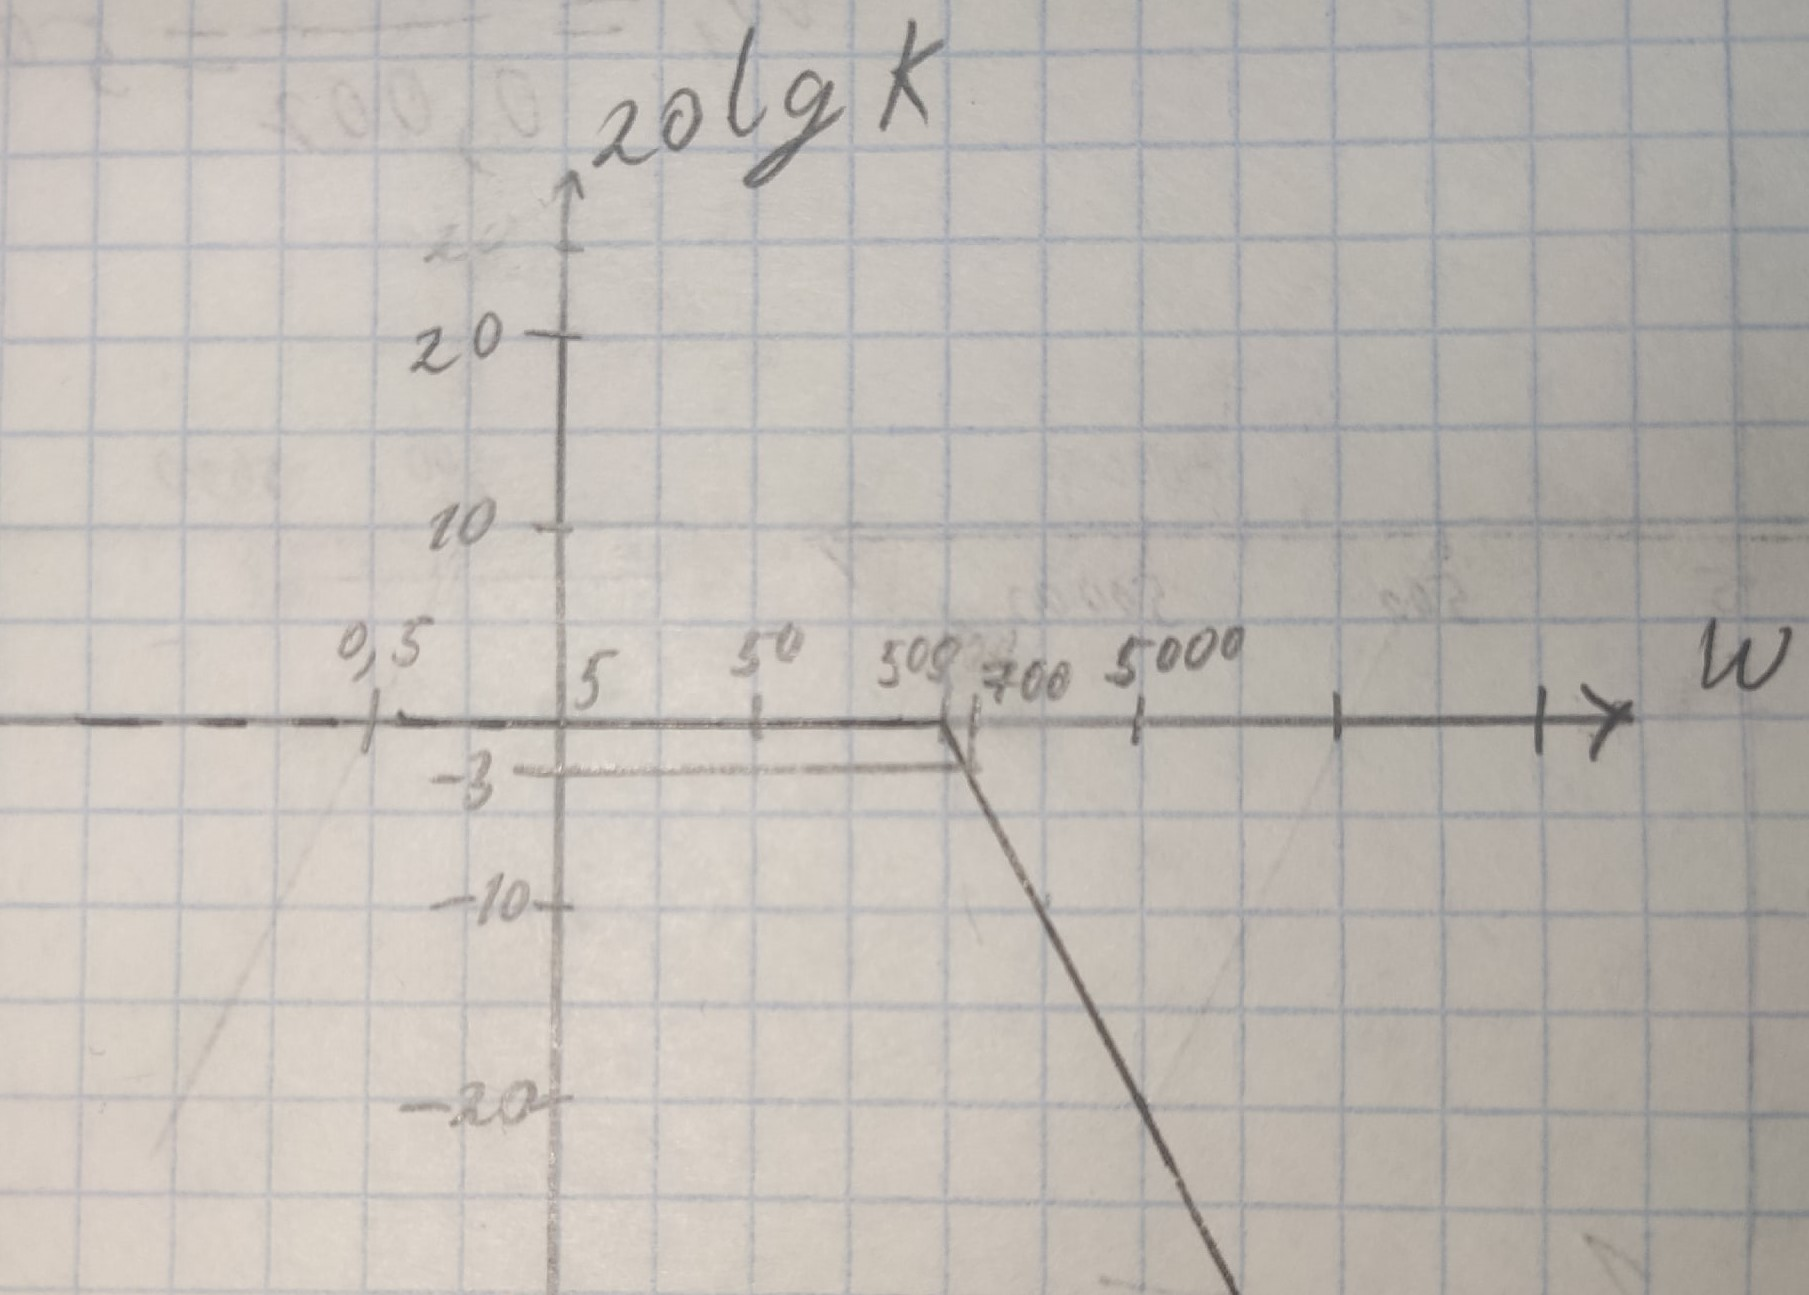 20lg K
20
10
0,5 5 50 500 700 5000 W
-3
-10
-20